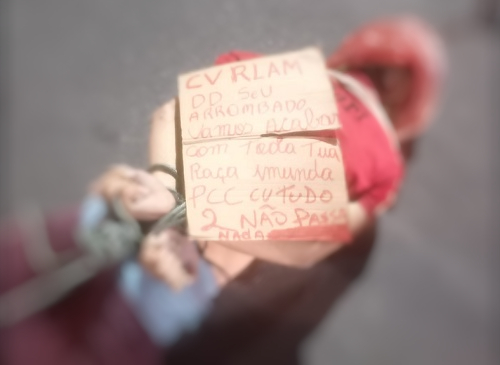 CV RLAM
DD SeU
ARROMBADO
Vamos acabar
com Toda Tua
Raça imunda
PCC CV TUDO
2 NÃO PASSA
NADA